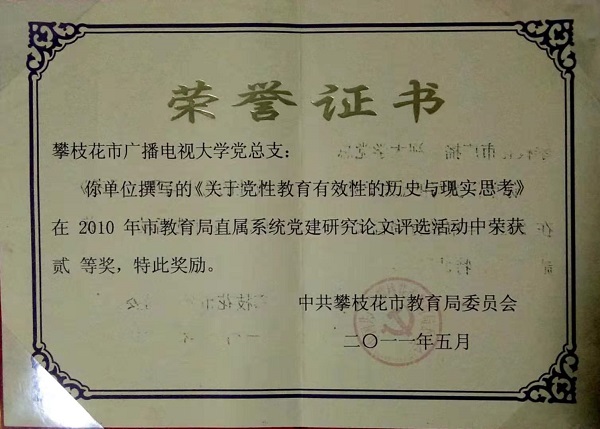 荣誉证书
攀枝花市广播电视大学党总支：
你单位撰写的《关于党性教育有效性的历史与现实思考》
在 2010 年市教育局直属系统党建研究论文评选活动中荣获
贰 等奖，特此奖励。
中共攀枝花市教育局委员会
二〇一一年五月